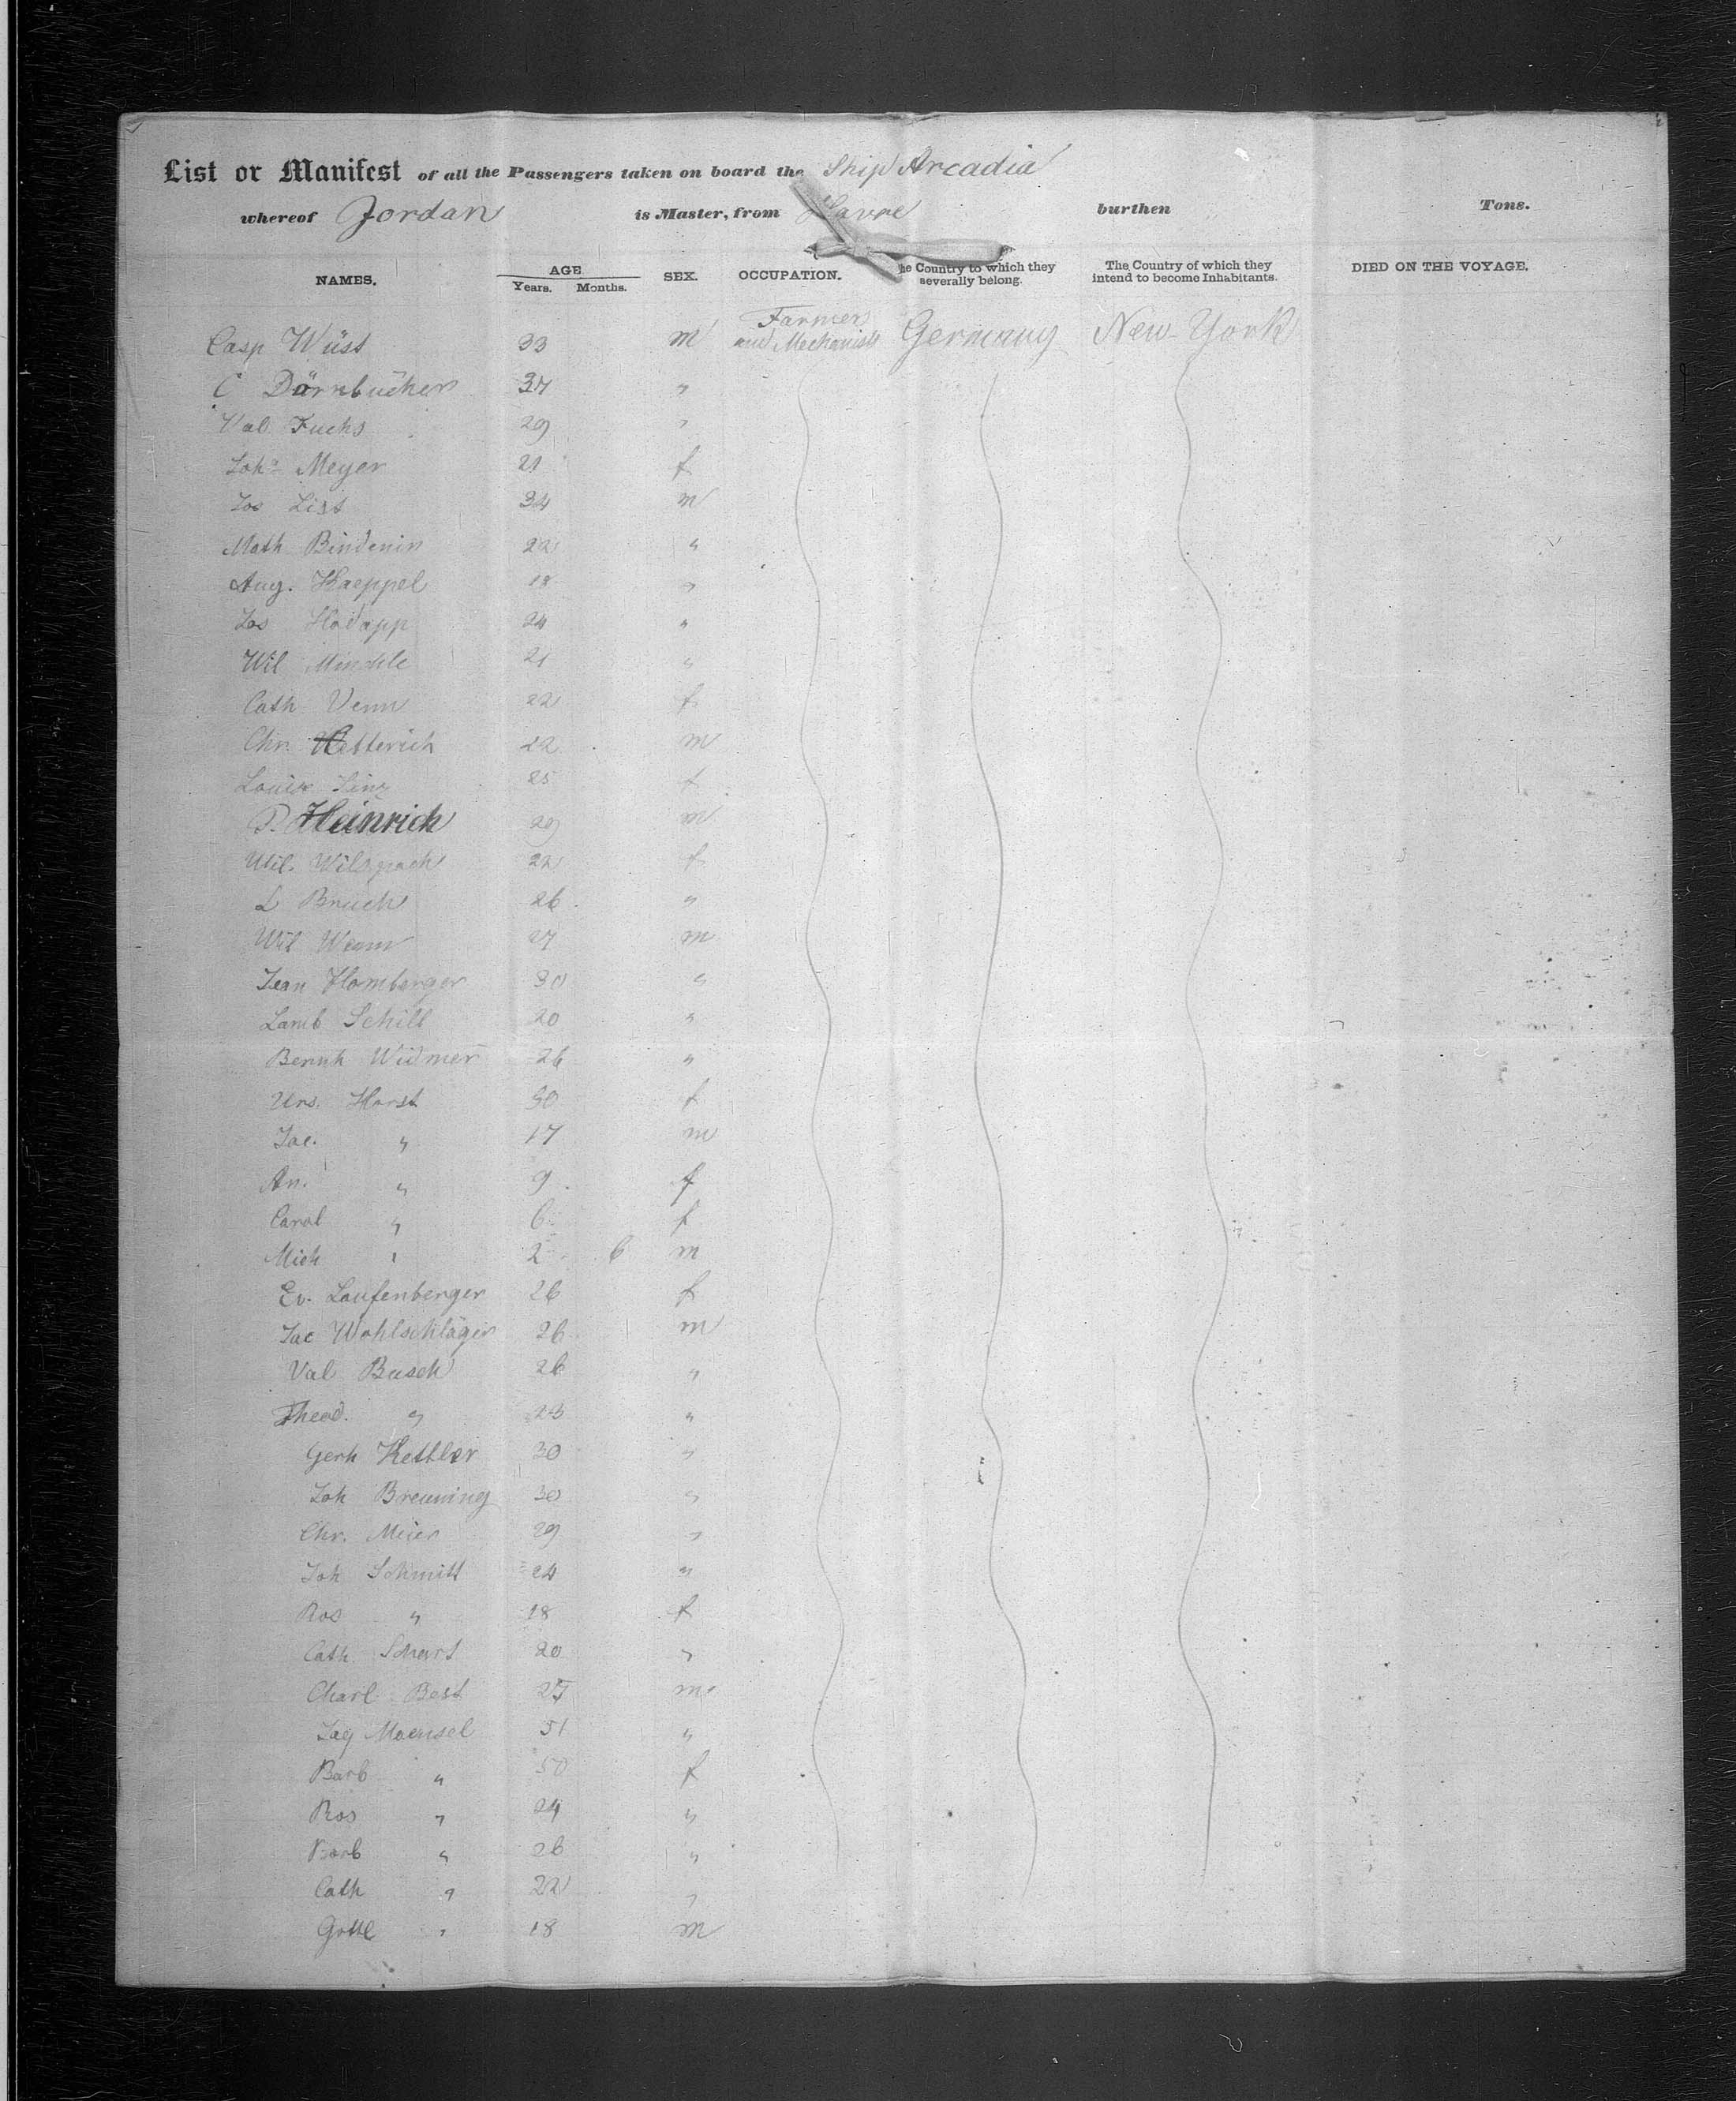 List or Manifest of all the Passengers taken on board the Ship Arcadia
whereof Jordan is Master, from Havre burthen Tons.
NAMES. AGE Years. Months. SEX. OCCUPATION. he Country to which they severally belong. The Country of which they intend to become Inhabitants. DIED ON THE VOYAGE.
Casp Wüst 33 m Farmers and Mechanists Germany New York
C Dörnbücher 37 "
Val Fuchs 29 "
Joha Meyer 21 f
Jos List 34 m
Math Bindenin 22 "
Aug. Kaeppel 18 "
Jos Hodapp 24 "
Wil 21 "
Cath Venn 22 f
Chr. Hetterich 22 m
Louise 25 f
P. Heinrich 29 m
Wil. Wilspach 22 f
L Bruch 26 "
Wil Wenn 27 m
Jean Homberger 30 "
Lamb Schill 20 "
Bernh Widmer 26 "
Urs. Horst 30 f
Jac. " 17 m
An. " 9 f
Carol " 6 f
Mich " 2 6 m
Ev. Laufenberger 26 f
Jac Wohlschläger 26 m
Val Busch 26 "
Theod. " 23 "
Gerh Kettler 30 "
Joh Breuning 30 "
Chr. Meier 29 "
Joh Schmitt 24 "
Ros " 18 f
Cath 20 "
Charl Best 25 m
Jaq Maensel 51 "
Barb " 50 f
Ros " 24 "
Barb " 26 "
Cath " 22 "
Gottl " 18 m